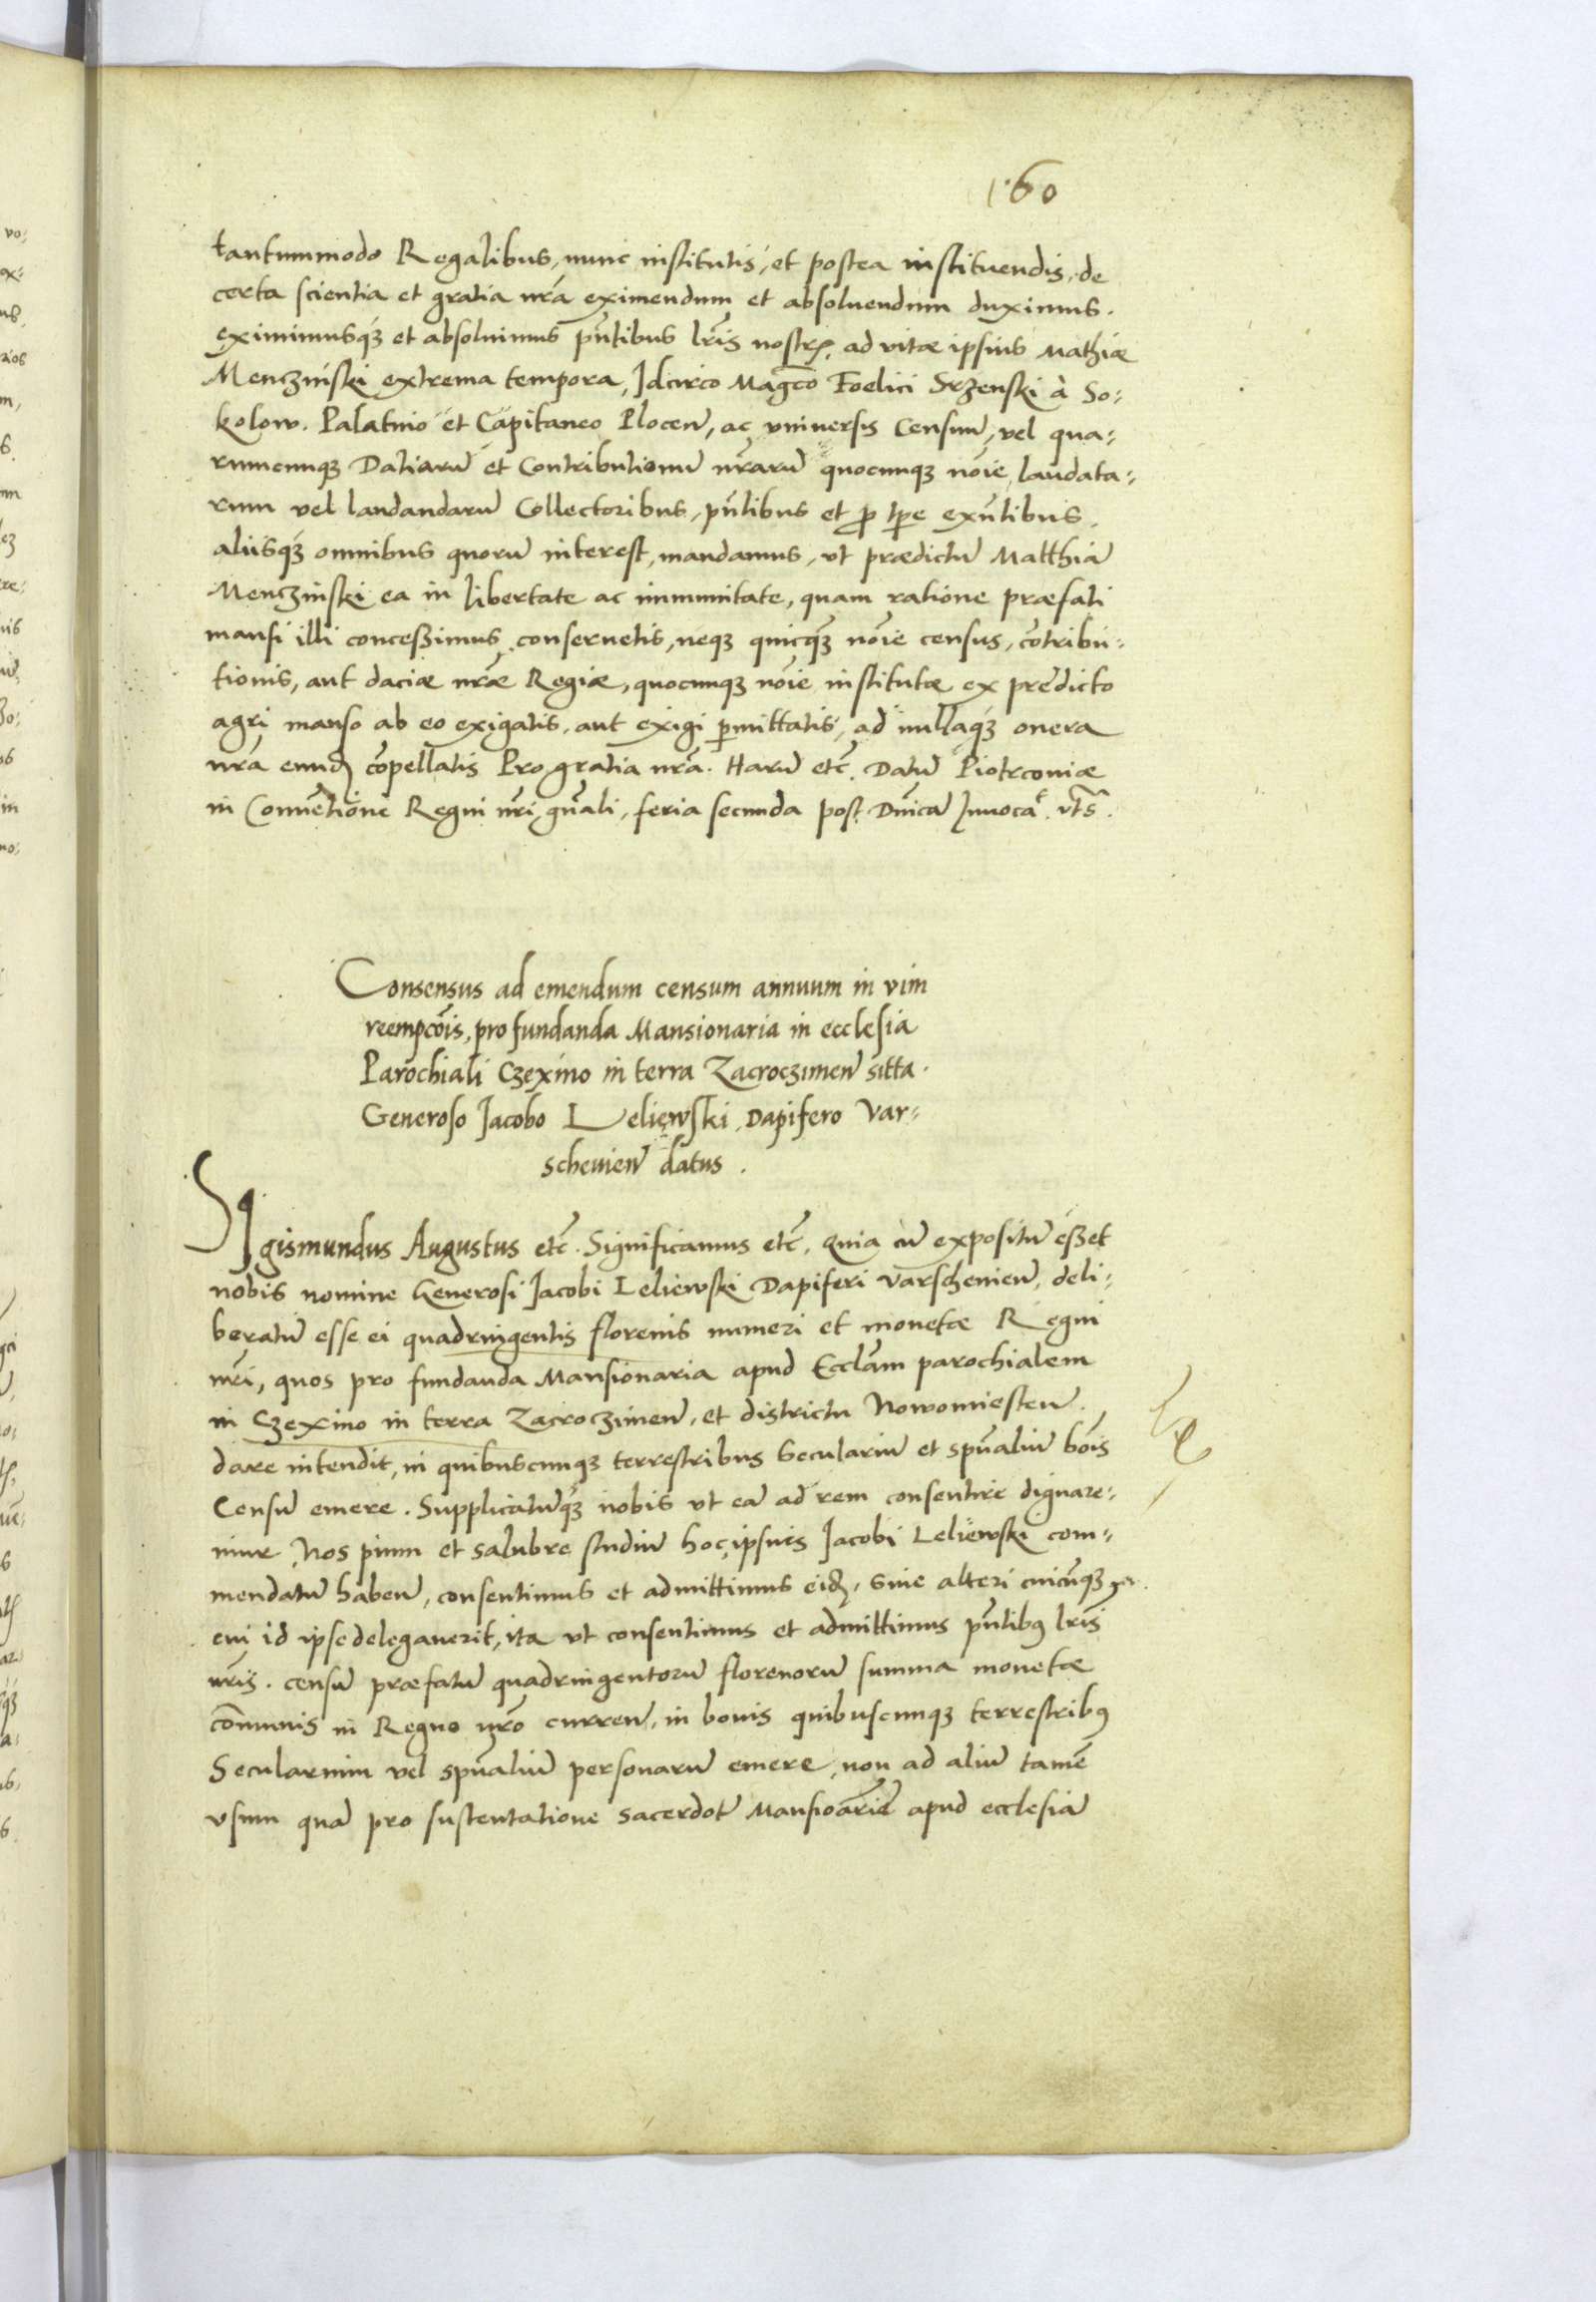 160
tantummodo Regalibus, nunc institutis, et postea instituendis, de
certa scientia et gratia nr̃a eximendum et absoluendum duximus.
eximimusq́ȝ et absoluimus pñtibus lr̃is nostrꝭ, ad vitæ ipsius Mathiæ
Menczinski extrema tempora, Idcirco Mag̃co Foelici Srzenski à So-
kolow. Palatino et Capitaneo Plocen̄, ac vniuersis Censuū, vel qua-
rumcunqȝ Datiarū et Contributionū nr̃arū quocunqȝ nōie laudata-
rum vel laudandarū Collectoribus, pñtibus et ꝓ tp̄e exñtibus.
alijsq́ȝ omnibus quorū interest, mandamus, vt prædictū Matthiā
Menczinski ea in libertate ac immunitate, quam ratione præfati
mansi illi conceßimus conseruetis, neqȝ quicq̃ȝ nōie census, cōtribu-
tionis, aut daciæ nr̃æ Regiæ, quocunqȝ nōie institutæ ex prędicto
agri manso ab eo exigatis, aut exigi ꝑmittatis, ad nullaq́ȝ onera
nr̃a eundꝫ cōpellatis Pro gratia nr̃a. Harū etc̄. Datū Piotrconiæ
in Conuētione Regni nr̃i gñali, feria secunda post Dñicā Inuocā. vts̃.
Consensus ad emendum censum annuum in vim
reempcōis, pro fundanda Mansionaria in ecclesia
Parochiali Czexino in terra Zacroczimen̄ sitta.
Generoso Jacobo Leliewski Dapifero Var-
scheuien̄ datus.
Sigismundus Augustus etc̄. Significamus etc̄. Quia cū expositū eßet
nobis nomine Generosi Jacobi Leliewski Dapiferi Varscheuien̄, deli-
beratū esse ei quadringentis florenis numeri et monetæ Regni
nr̃i, quos pro fundanda Mansionaria apud Eccl̃am parochialem
in Czexino in terra Zacroczimen̄, et districtu Nowomiesten̄.
dare intendit, in quibuscunqȝ terrestribus Seculariū et spũaliū bōis
Censū emere. Supplicatūq́ȝ nobis vt eā ad rem consentire dignare-
mur, Nos pium et salubre studiū hoc ipsius Jacobi Leliewski com-
mendatū haben̄, consentimus et admittimus eidꝫ, siue alteri cuicūqȝ
cui id ipse delegauerit, ita vt consentimus et admittimus pñtibꝰ lr̃is
nr̃is. censū præfatū quadringentorū florenorū summa monetæ
cōmunis in Regno nr̃o curren̄, in bonis quibuscunqȝ terrestribꝰ
Secularium vel spũaliū personarū emere, non ad aliū tamē
vsum quā pro sustentatione sacerdotū Mansioāriā apud ecclesiā